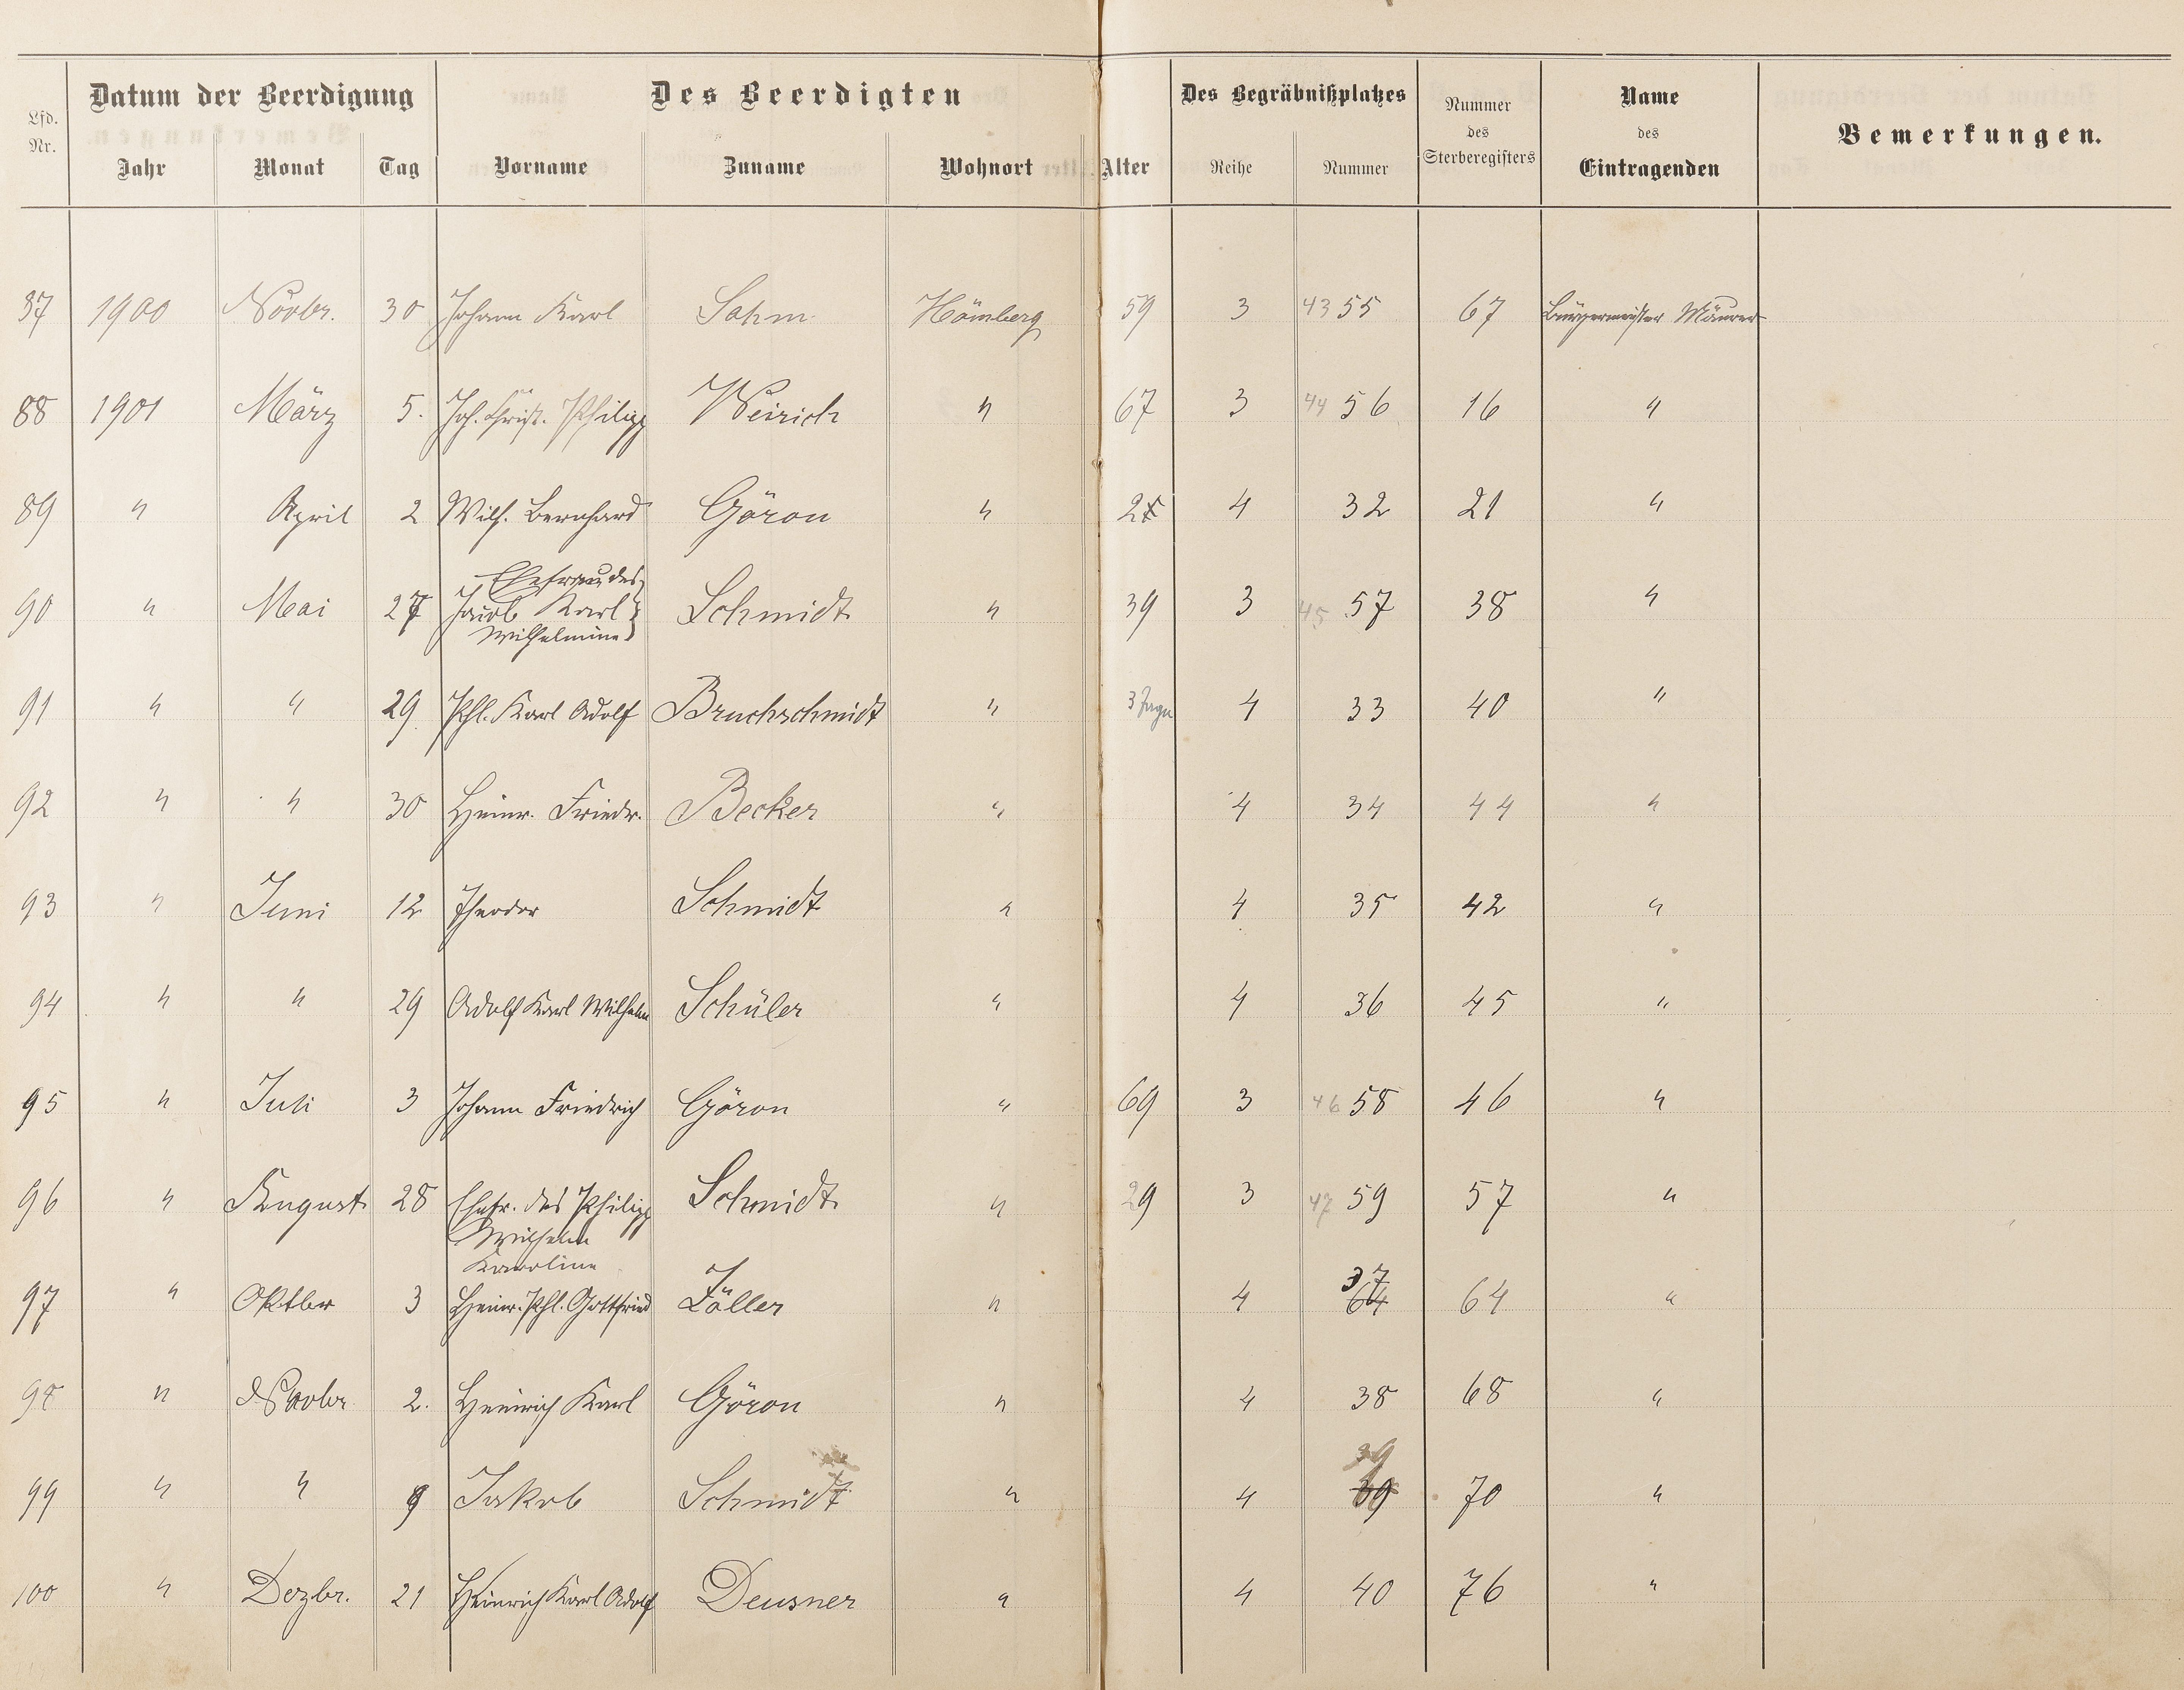 Datum der Beerdigung Des Beerdigten Des Begräbnißplatzes Nummer des Sterberegisters Name des Eintragenden Bemerkungen.
Lfd. Nr. Jahr Monat Tag Vorname Zuname Wohnort Alter Reihe Nummer
87 1900 Novbr. 30 Johann Karl Sahm Hömberg 59 3 43 55 67 Bürgermeister Maurer
88 1901 März 5. Joh. Christ. Philipp Weirich " 67 3 44 56 16 "
89 " April 2 Wilh. Bernhard Göron " 2 4 32 21 "
Ehefrau des
90 " Mai 27 Jacob Karl Schmidt " 39 3 45 57 38 "
Wilhelmine
91 " " 29 Phl. Karl Adolf Bruchschmidt " 3 4 33 40 "
92 " " 30 Heinr. Friedr. Becker " 4 34 44 "
93 " Juni 12 Theodor Schmidt " 4 35 42 "
94 " " 29 Adolf Karl Wilhelm Schüler " 4 36 45 "
95 " Juli 3 Johann Friedrich Göron " 69 3 46 58 46 "
96 " August 28 Ehefr. des Philipp Schmidt " 29 3 47 59 57 "
Wilhelm
Karoline
37
97 " Oktbr 3 Heinr. Phl. Gottfried Zöller " 4 64 64 "
98 " Novbr 2. Heinrich Karl Göron " 4 38 68 "
39
99 " " 9 Jakob Schmidt " 4 39 70 "
100 " Dezbr. 21 Heinrich Karl Adolf Deusner " 4 40 76 "